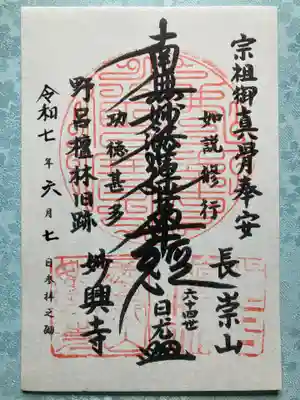 宗祖御真骨奉安
長崇山
如説修行
南無妙法蓮華経
六十四世
日龙
功徳甚多
野呂檀林旧跡
妙興寺
令和七年六月七日参拝之砌